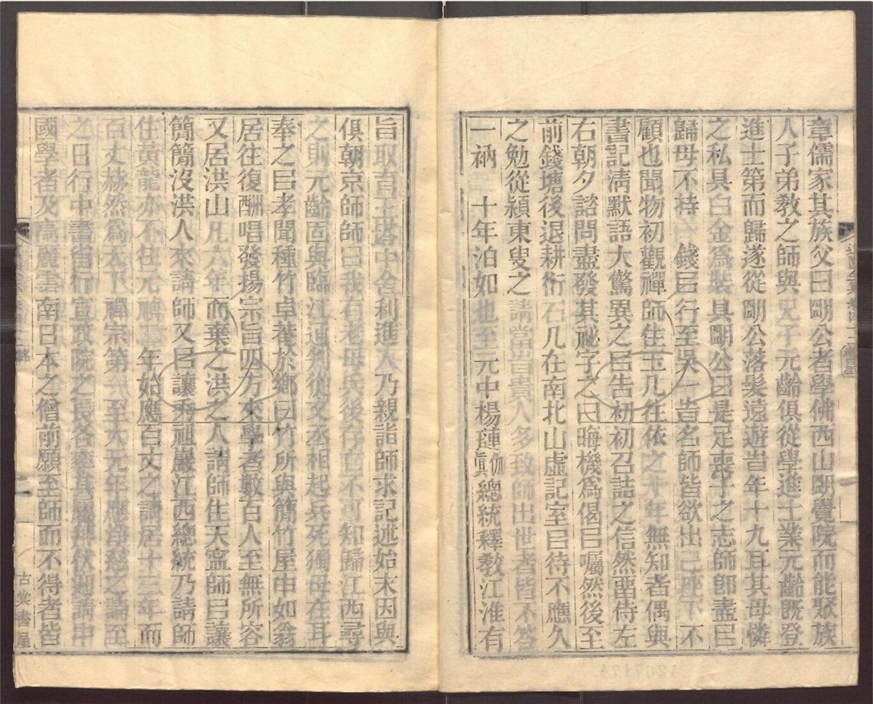 章儒家其族父曰明公者學佛西山明覺院而能聚族
人子弟教之師與兄子元齡俱從學進士業元齡旣登
進士第而歸遂從明公落髮遠遊旹年十九耳其母憐
之私具白金爲裝具明公曰是足喪子之志師卽盡曰
歸母不持一錢曰行至吳一旹名師皆欲出己座下不
顧也聞物初觀禪師住玉几往依之十年無知者偶與
書記淸默語大驚異之曰告初初召詰之信然畱侍左
右朝夕諮問盡發其祕字之曰晦機爲偈曰囑然後至
前錢塘後退耕衍石几在南北山虛記室曰待不應久
之勉從潁東叟之請當旹貴人多致師出世者皆不答
一衲 十年泊如也至元中楊璉伽眞總統釋教江淮有
旨取育王塔中舍利進入乃親詣師求記述始末因與
俱朝京師師曰我有老母兵後存亡不可知歸江西尋
之則元齡固與臨江通判從文丞相起兵死獨母在耳
奉之曰孝聞種竹卓菴於鄉曰竹所與簡竹屋申如翁
居往復酬唱發揚宗旨四方來學者數百人至無所容
又居洪山凡六年而棄之洪之人請師住天寧師曰讓
簡簡沒洪人來請師又曰讓祖巖江西總統乃請師
住黃龍亦不往元禎 年始應百丈之請居十三年而
百丈赫然爲天下禪宗第一至大元年應淨慈之請至
之日行中書省行宣政院之長各率其屬拜伏迎請中
國學者及高麗雲南日本之僧前願至師而不得者皆
古棠書屋